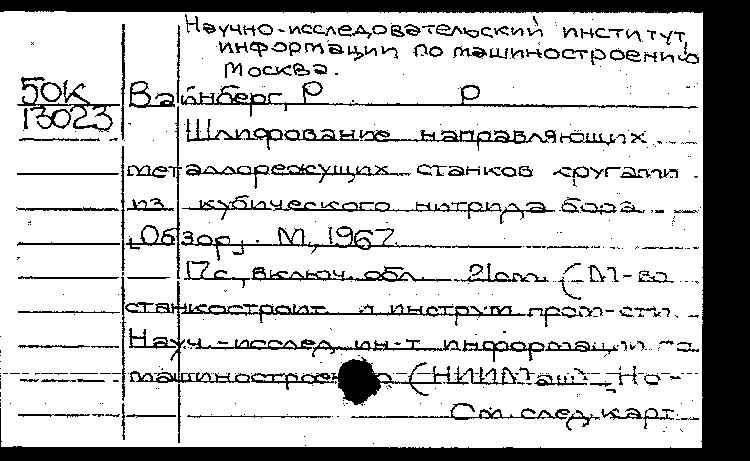 Научно-исследовательский институт
информации по машиностроению
Москва.
50К Вайнберг, Р Р
13023
Шлифование направляющих
металлорежущих станков кругами
из кубического нитрида бора
[Обзор]. М., 1967.
17 с., включ. обл. 21 см. (М-во
станкостроит. и инструм. пром-сти.
Науч.-исслед. ин-т информации по
машиностроению (НИИМаш). Но-
См. след. карт.